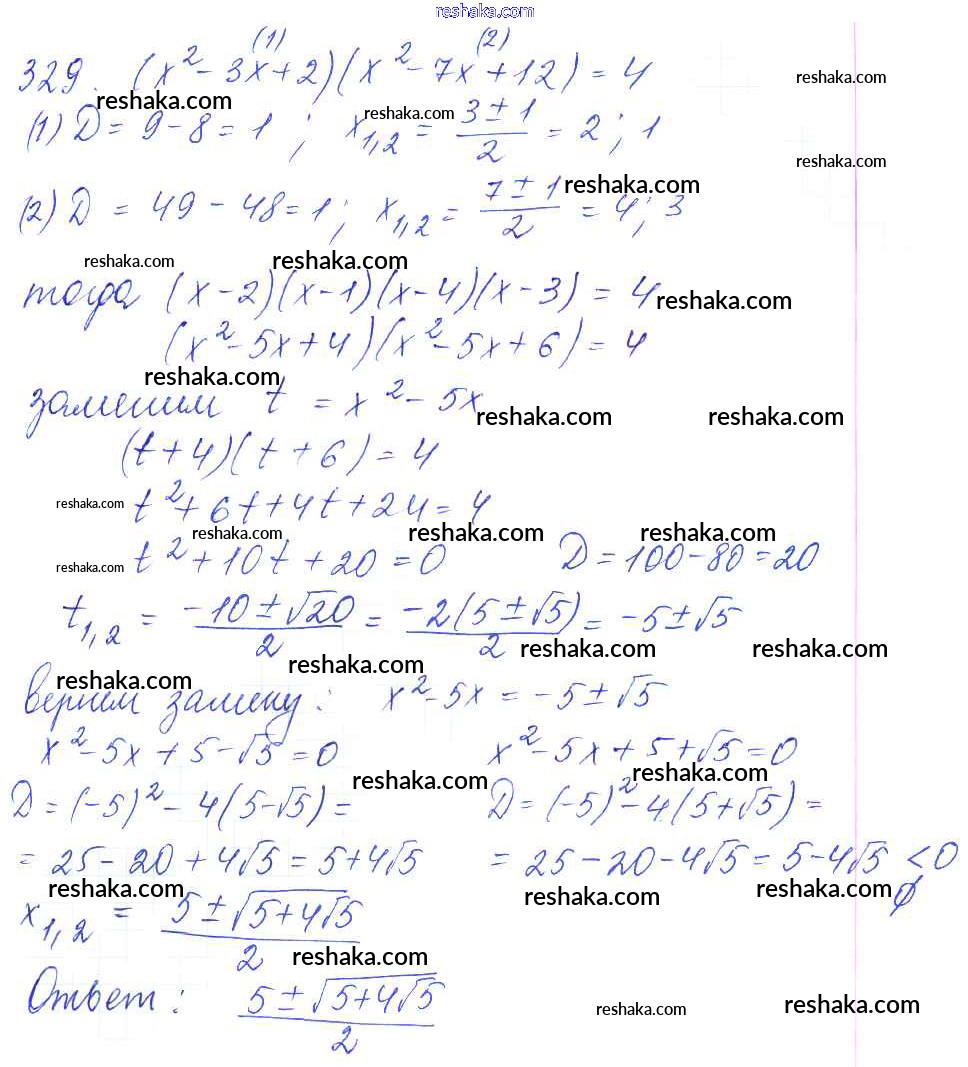 reshaka.com
(1) (2)
329. (x² - 3x + 2)(x² - 7x + 12) = 4
reshaka.com
reshaka.com reshaka.com
(1) D = 9 - 8 = 1 ; x₁,₂ = (3 ± 1)/2 = 2 ; 1
reshaka.com
reshaka.com
(2) D = 49 - 48 = 1 ; x₁,₂ = (7 ± 1)/2 = 4 ; 3
reshaka.com reshaka.com
тогда (x - 2)(x - 1)(x - 4)(x - 3) = 4
reshaka.com
(x² - 5x + 4)(x² - 5x + 6) = 4
reshaka.com
заменим t = x² - 5x
reshaka.com reshaka.com
(t + 4)(t + 6) = 4
reshaka.com t² + 6t + 4t + 24 = 4
reshaka.com reshaka.com reshaka.com
reshaka.com t² + 10t + 20 = 0 D = 100 - 80 = 20
t₁,₂ = (-10 ± √20)/2 = (-2(5 ± √5))/2 = -5 ± √5
reshaka.com reshaka.com
reshaka.com reshaka.com
вернем замену : x² - 5x = -5 ± √5
x² - 5x + 5 - √5 = 0 x² - 5x + 5 + √5 = 0
reshaka.com reshaka.com
D = (-5)² - 4(5 - √5) = D = (-5)² - 4(5 + √5) =
= 25 - 20 + 4√5 = 5 + 4√5 = 25 - 20 - 4√5 = 5 - 4√5 < 0
reshaka.com reshaka.com reshaka.com ∅
x₁,₂ = (5 ± √(5 + 4√5))/2
reshaka.com
Ответ : (5 ± √(5 + 4√5))/2
reshaka.com reshaka.com